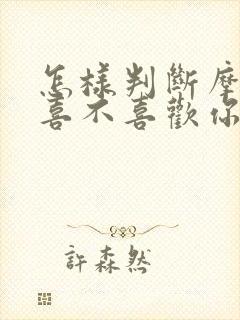 怎樣判斷摩
喜不喜歡你
許森然